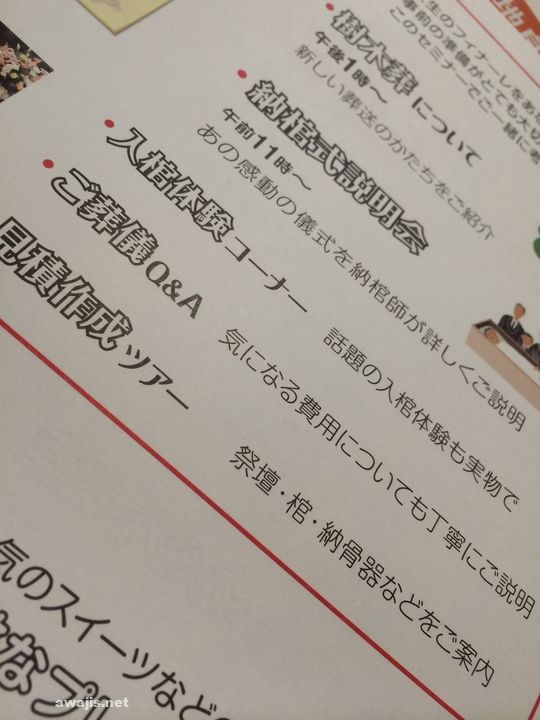 生のフィナーレをあな
事前の準備がとても大切
このセミナーでご一緒に考
樹木葬について
午後1時～
新しい葬送のかたちをご紹介
納棺式説明会
午前11時～
あの感動の儀式を納棺師が詳しくご説明
入棺体験コーナー
話題の入棺体験も実物で
ご葬儀Q&A
気になる費用についても丁寧にご説明
見積作成ツアー
祭壇・棺・納骨器などをご案内
気のスイーツなど
なプレ
awajis.net